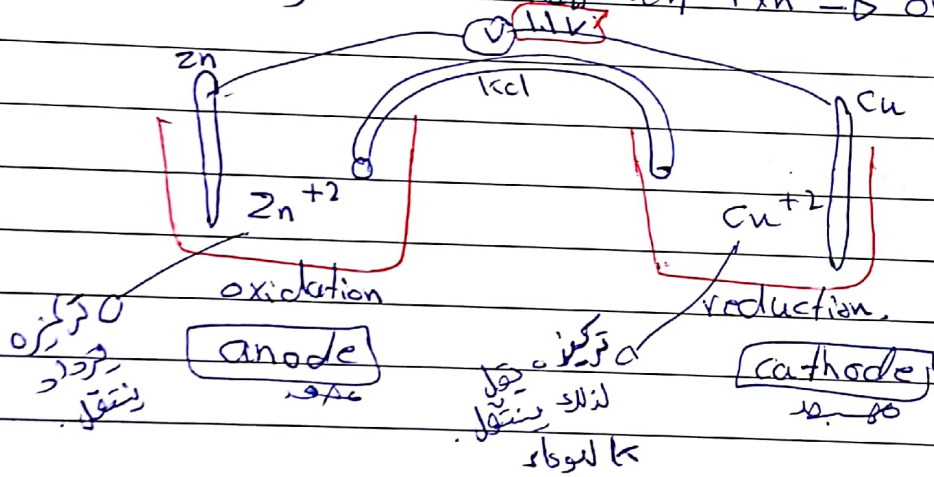 rxn → O
V 1.1 V
Zn
KCl
Cu
Zn +2
Cu +2
oxidation
reduction.
anode
cathode
مصعد
مهبط
تركيزه
يزداد
ينتقل
تركيزه يقل
لذلك ينتقل
K لهوا